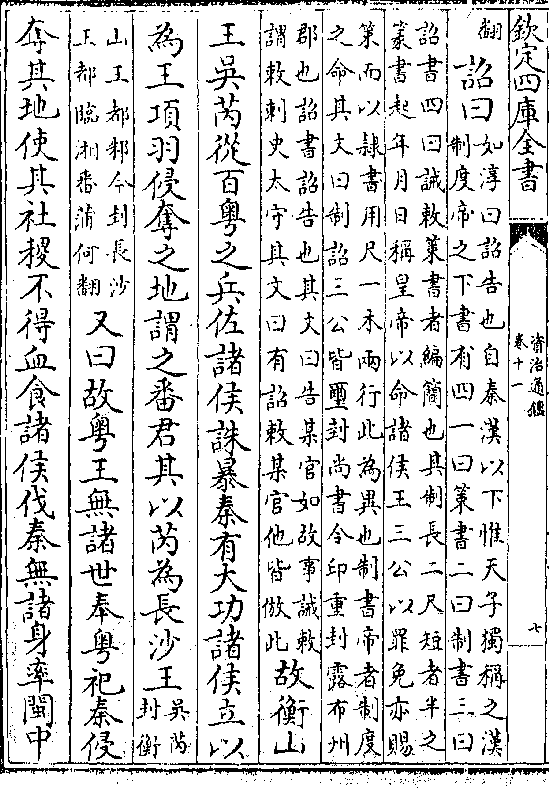 欽定四庫全書
資治通鑑
卷十一
七
翻
詔曰
如淳曰詔告也自秦漢以下惟天子獨稱之漢
制度帝之下書有四一曰策書二曰制書三曰
詔書四曰誡敕策書者編簡也其制長二尺短者半之
篆書起年月日稱皇帝以命諸侯王三公以罪免亦賜
策而以隷書用尺一木兩行此為異也制書帝者制度
之命其文曰制詔三公皆璽封尚書令印重封露布州
郡也詔書詔告也其文曰告某官如故事誡敕
謂敕刺史太守其文曰有詔敕某官他皆倣此
故衡山
王吳芮從百粤之兵佐諸侯誅暴秦有大功諸侯立以
為王項羽侵奪之地謂之番君其以芮為長沙王
吳芮
封衡
山王都邾今封長沙
王都臨湘番蒲何翻
又曰故粤王無諸世奉粤祀秦侵
奪其地使其社稷不得血食諸侯伐秦無諸身率閩中